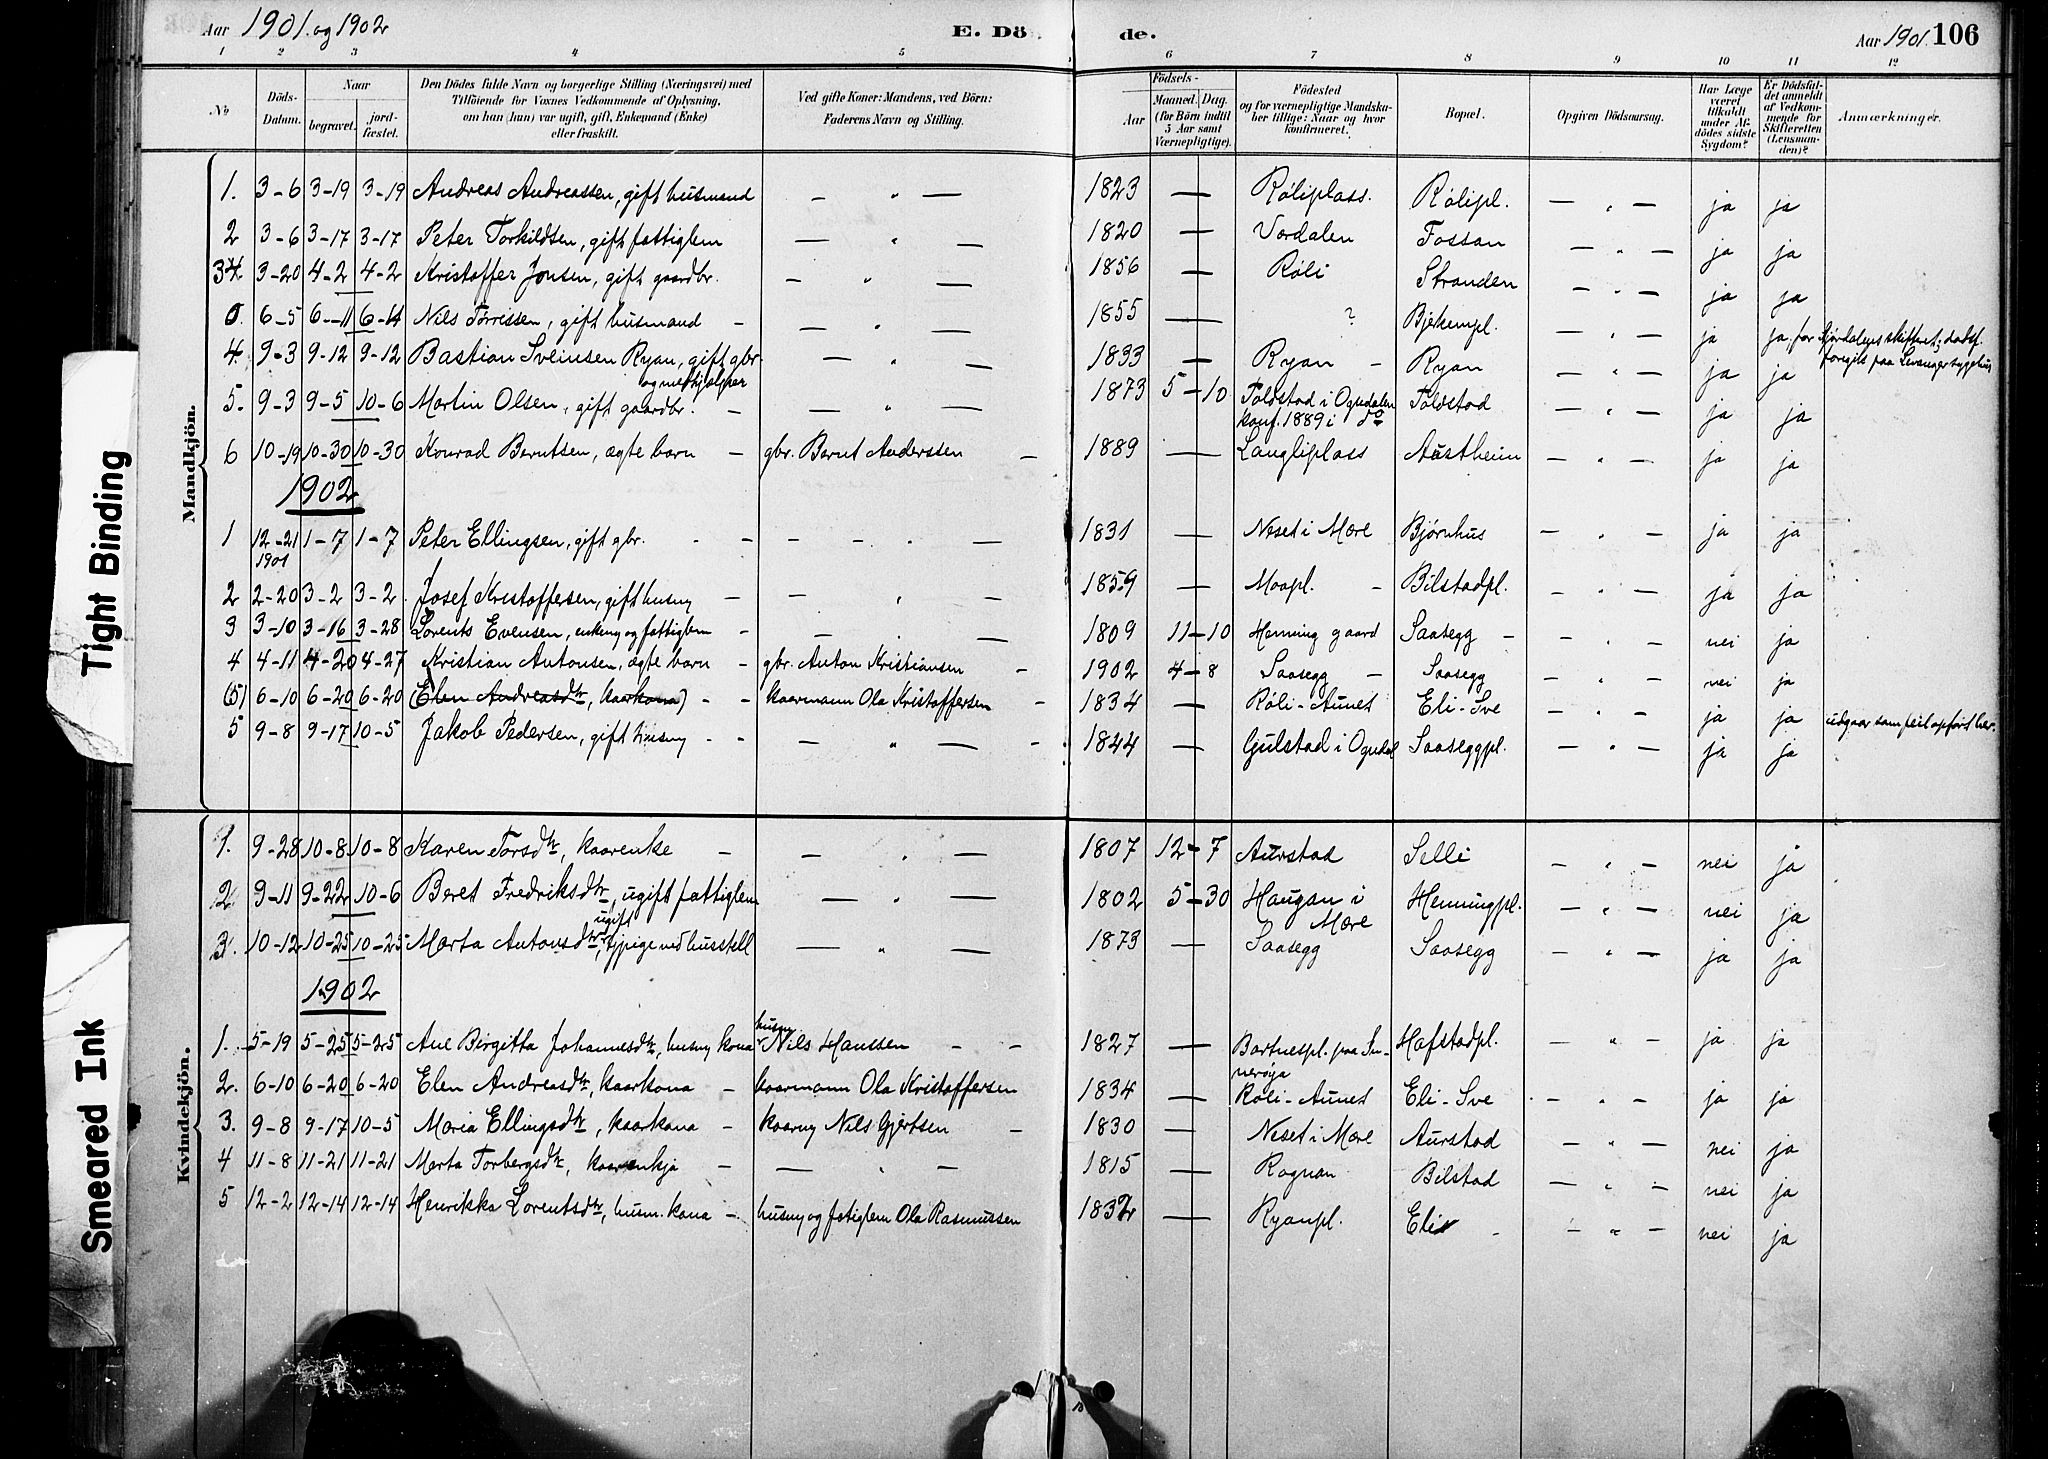 Aar 1901 og 1902
E. Dö de.
Aar 1901. 106
1 2 3 4 5 6 7 8 9 10 11 12
No
Döds-Datum.
Naar
begravet.
jord-fæstet.
Den Dödes fulde Navn og borgerlige Stilling (Næringsvei) med
Tilföiende for Voxnes Vedkommende af Oplysning,
om han (hun) var ugift, gift, Enkemand (Enke)
eller fraskilt.
Ved gifte Koner: Mandens, ved Börn:
Faderens Navn og Stilling.
Födsels-
Aar
Maaned. Dag.
(for Börn indtil 5 Aar samt Værnepligtige).
Födested
og for værnepligtige Mandskaber tillige: Naar og hvor konfirmeret.
Bopæl.
Opgiven Dödsaarsag.
Har Læge været tilkaldt under Afdödes sidste Sygdom?
Er Dödsfaldet anmeldt af Vedkommende for Skifteretten (Lensmanden)?
Anmærkninger.
Mandkjön.
1. 3-6 3-19 3-19 Andreas Andreassen, gift husmand — " — 1823 — Røliplass. Rølipl. — " — ja ja
2 3-6 3-17 3-17 Peter Torkildsen, gift fattiglem — " — 1820 — Vordalen Fossan — " — ja ja
3 3-20 4-2 4-2 Kristoffer Jonsen, gift gaardbr. — " — 1856 — Røli Stranden — " — ja ja
0. 6-5 6-11 6-11 Nils Tørrissen, gift husmand — " — 1855 — ? Bjekempl. — " — ja ja, for Stjørdalens skifteret; dødsf.
4. 9-3 9-12 9-12 Bastian Sveinsen Ryan, gift gbr. — " — 1833 — Ryan Ryan — " — ja ja foregik paa Levanger sygehus
og medhjælper
5. 9-3 9-5 10-6 Martin Olsen, gift gaardbr. — " — 1873 5-10 Toldstad i Ogndalen Toldstad — " — ja ja
konf. 1889 i do
6 10-19 10-30 10-30 Konrad Berntsen, ægte barn gbr. Bernt Anderssen 1889 — Langliplass Austheim — " — ja ja
1902
1 12-21 1-7 1-7 Peter Ellingsen, gift gbr. — " — 1831 — Neset i Mære Bjørnhus — " — ja ja
1901
2 2-20 3-2 3-2 Josef Kristoffersen, gift husm — " — 1859 — Moapl. Bilstadpl. — " — ja ja
3 3-10 3-16 3-28 Lorents Evensen, enkem og fattiglem — " — 1809 11-10 Henning gaard Saasegg — " — nei ja
4 4-11 4-20 4-27 Kristian Antonsen, ægte barn gbr. Anton Kristiansen 1902 4-8 Saasegg Saasegg — " — nei ja
(5) 6-10 6-20 6-20 (Elen Andreasdtr, kaarkona) kaarmann Ola Kristoffersen 1834 — Røli-Aunet Eli-Sve — " — ja ja udgaar som feil opført her.
5 9-8 9-17 10-5 Jakob Pedersen, gift husm — " — 1844 — Gulstad i Ogndal Saaseggpl. — " — ja ja
Kvindekjön.
1. 9-28 10-8 10-8 Karen Torsdtr, kaarenke — " — 1807 12-7 Aurstad Selli — " — nei ja
2 9-11 9-22 10-6 Beret Fredriksdtr, ugift fattiglem — " — 1802 5-30 Haugan i Mære Henningpl. — " — nei ja
3. 10-12 10-25 10-25 Marta Antonsdtr, ugift pige ved husstell — " — 1873 — Saasegg Saasegg — " — ja ja
1902
1. 5-19 5-25 5-25 Ane Birgitta Johannesdtr, husm kona husm Nils Hanssen 1827 — Bartnespl. paa Inderøya Hafstadpl. — " — ja ja
2. 6-10 6-20 6-20 Elen Andreasdtr, kaarkona kaarmann Ola Kristoffersen 1834 — Røli-Aunet Eli-Sve — " — ja ja
3. 9-8 9-17 10-5 Maria Ellingsdtr, kaarkona kaarm Nils Gjertsen 1830 — Neset i Mære Aurstad — " — nei ja
4 11-8 11-21 11-21 Marta Torbergsdtr, kaarenkja — " — 1815 — Rognan Bilstad — " — nei ja
5 12-2 12-14 12-14 Henrikka Lorentsdtr, husm. kona husm og fatiglem Ola Rasmussen 1832 — Ryanpl. Eli — " — nei ja
Tight Binding
Smeared Ink